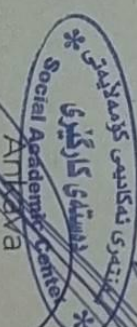 سەنتەری ئەکادیمی کۆمەڵایەتی
دەستەی کارگێڕی
Social Academic Center
Ankawa